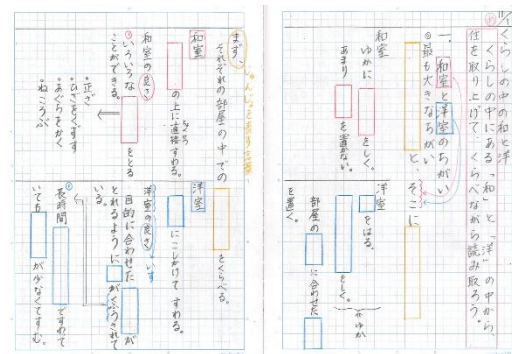 11/1
くらしの中の和と洋
め
くらしの中にある「和」と「洋」の中から、
住を取り上げて、くらべながら読み取ろう。
一、和室と洋室のちがい
◎最も大きなちがい
と、そこに
和室
ゆかに
をしく。
あまり
を置かない。
洋室
をはる。
をしく。
ゆか
部屋の
に合わせた
を置く。
まず、
それぞれの部屋の中での
をくらべる。
和室
の上に直接すわる。
和室の良さ
いろいろな
をとる
ことができる。
・正ざ
・ひざをくずす
・あぐらをかく
・ねころぶ
洋室
にこしかけてすわる。
洋室の良さ
いす
目的に合わせた
が
とれるように
がくふうされて
いる。
長時間
すわって
いても
が少なくてすむ。